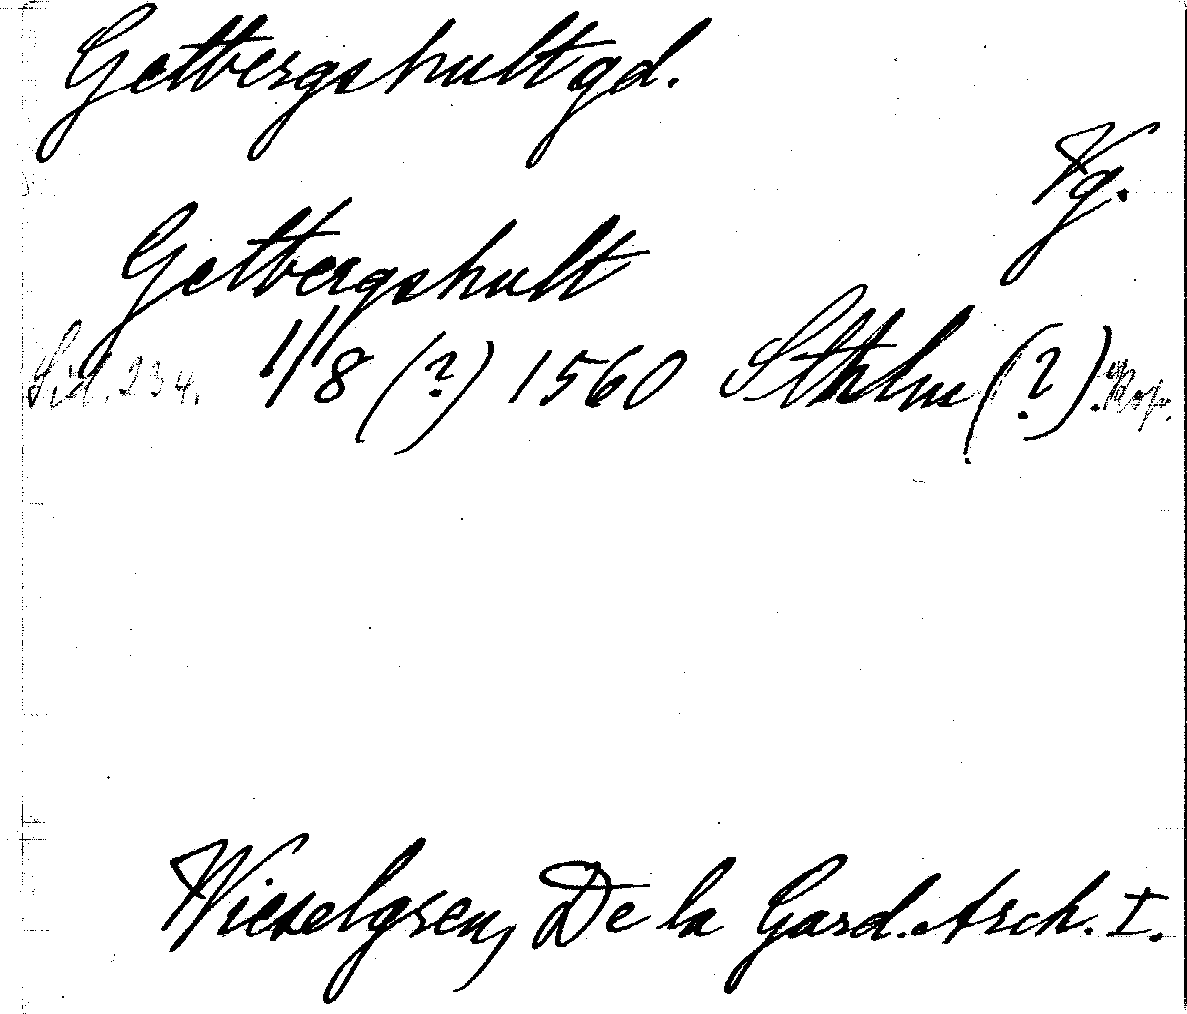 Getbergshult gd.
Vg.
Getbergshult
Sid. 234. 1/8 (?) 1560 Sthlm (?).
Wieselgren, De la Gard. Arch. I.